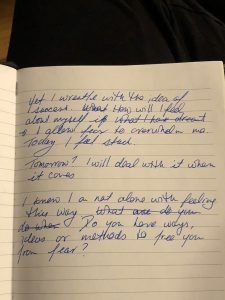 Yet I wrestle with the idea of
success. What How will I feel
about myself if what I have dreamt
& I allow fear to overwhelm me.
Today I feel stuck.
Tomorrow? I will deal with it when
it comes
I know I a not alone with feeling
this way. What are do you
do when Do you have ways,
ideas or methods to free you
from fear?